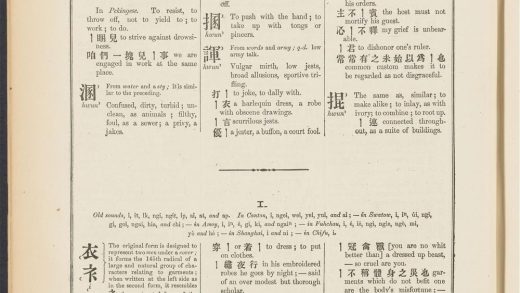 In Pekingese. To resist, to
throw off, not to yield to; to
work; to do.
丨睏兒 to strive against drowsi-
ness.
咱們一塊兒丨事 we are
engaged in work at the same
place.
溷 From water and a sty; It is sim-
ilar to the preceding.
hwun’
Confused, dirty, turbid; un-
clean, as animals; filthy,
foul, as a sewer; a privy, a
jakes.
off.
To push with the hand; to
take up with tongs or
pincers.
hwun’
諢 From words and army; q.d. low
army talk.
hwun’
Vulgar mirth, low jests,
broad allusions, sportive tri-
fling.
打丨 to joke, to dally with.
丨衣 a harlequin dress, a robe
with obscene drawings.
丨言 scurrilous jests.
優丨 a jester, a buffoon, a court fool.
his orders.
主不丨賓 the host must not
mortify his guest.
心不釋 my grief is unbear-
able.
丨君 to dishonor one's ruler.
常常有之未始以爲丨也
common custom makes it to
be regarded as not disgraceful.
掍 The same as, similar; to
make alike; to inlay, as with
ivory; to combine; to root up.
hwun’
丨連 connected through-
out, as a suite of buildings.
I.
Old sounds, i, it, ik, ngi, ngit, ip, ni, at, and up. In Canton, i, ngai, wei, yai, yui, and ai; — in Swatow, i, ùi, ngi,
gi, goi, ngai, hia, and chi; — in Amoy, i, iⁿ, é, gi, ki, and ngai; — in Fuhchau, i, é, ii, ngi, ngie, ngié, mi,
yi and hi; — in Shanghai, i and ni; — in Chifu, i.
衣
衤
The original form is designed to
represent two men under a cover;
it forms the 145th radical of a
large and natural group of char-
acters relating to garments;
when written at the left side as
in the second form, it resembles
穿丨 or 着丨 to dress; to put
on clothes.
丨繡夜行 in his embroidered
robes he goes by night; — said
of an over modest but thorough
scholar.
丨冠禽獸 [you are no whit
better than] a dressed up beast,
— so cruel are you.
丨不稱體身之災也 gar-
ments which do not befit one
are the body's misfortune; —